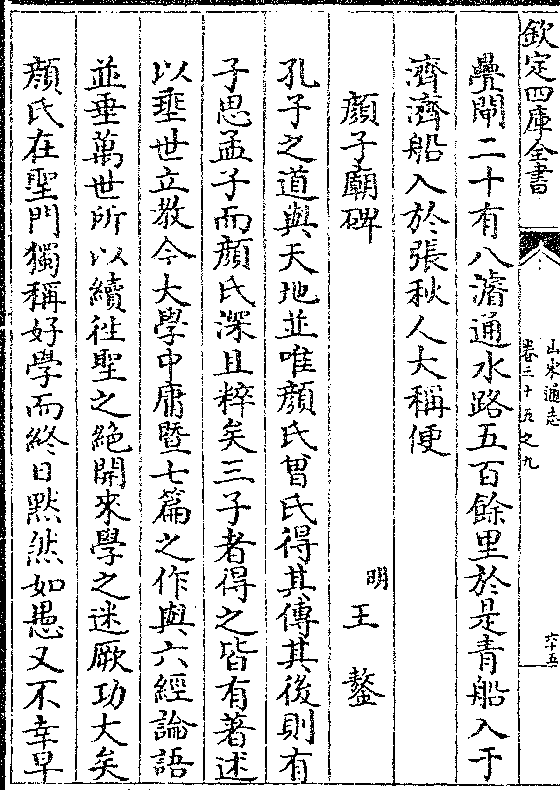 欽定四庫全書
山東通志
卷三十五之九
六十五
疊閘二十有八濬通水路五百餘里於是青船入于
濟濟船入於張秋人大稱便
顔子廟碑
明王鏊
孔子之道與天地並唯顔氏曽氏得其傳其後則有
子思孟子而顔氏深且粹矣三子者得之皆有著述
以垂世立教今大學中庸暨七篇之作與六經論語
並垂萬世所以續徃聖之絶開來學之迷厥功大矣
顔氏在聖門獨稱好學而終日黙然如愚又不幸早